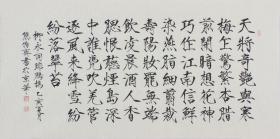 天將奇艷與寒
梅乍驚繁杏臘
前開暗想花神
巧作江南信鮮
染燕脂細剪裁
壽陽妝罷無端
飲凌晨酒入香
腮恨聽煙塢深
中誰恁吹羌管
逐風來絳雪紛
紛落翠苔
柳永詞瑞鷓鴣
書於京華